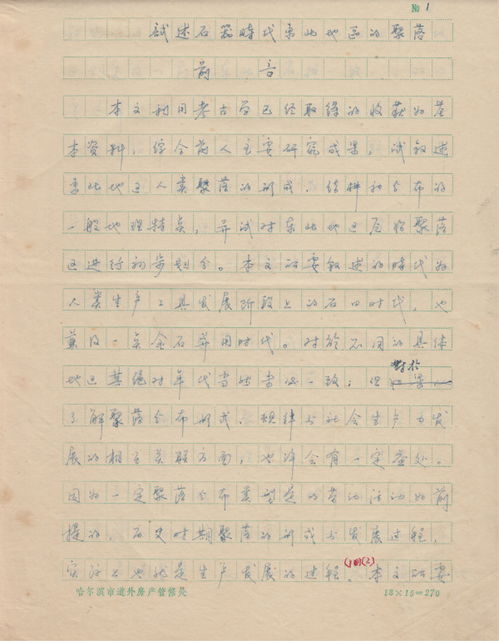 № 1
試述石器時代东北地区的聚落
前 言
本文利用考古学已经取得的收获为基
本资料，综合前人主要研究成果，试叙述
东北地区人类聚落的形成、结构和分布的
一般地理特点，并试对东北地区原始聚落
区进行初步划分。本文所要叙述的時代为
人类生产工具发展阶段上的石四时代，也
兼及一矣金石并用时代。对於不同的具体
地区其绝对年代当然当不一致；但对於
了解聚落分布形式、规律与社会生产力发
展的相互关联方面，也许会有一定益处。
因为一定聚落分布类型是的劳动活动为前
提的，历史时期聚落的形成与发展过程，
实际上也就是生产发展的过程。⑴⑵本文所要
哈尔滨市道外房产管修处 18×15=270